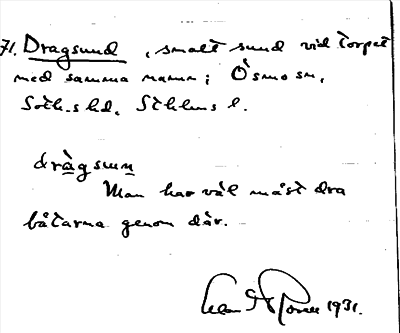 71. Dragsund, smalt sund vid torpet
med samma namn; Ösmo sn,
Soth.s hd, Sthlms l.
dràgsun
Man har väl måst dra
båtarna genom där.
1931.